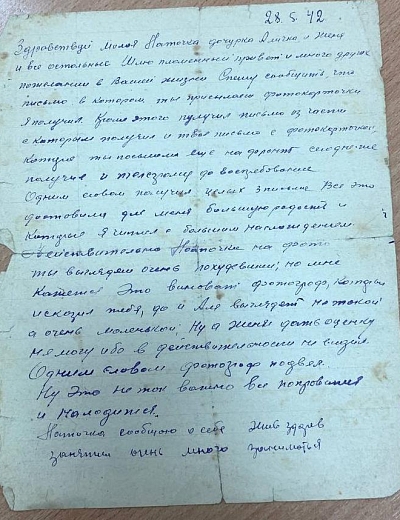 28.5.42
Здравствуй Милая Наточка дочурка Аличка и Женя
и все остальные Шлю пламенный привет и много других
пожелании в Вашей жизни Спешу сообщить что
письмо в котором ты присылаеш фотокарточки
я получил. Кроме этого получил письмо из части
с которым получил и твое письмо с фотокарточкой
которую ты посылала еще на фронт сегодня же
получил и телеграму до востребование
Одним словом получил целых 3 письма Все это
доставило для меня большую радость и
которые я читал с большим наслаждением.
Действительно Наточка на фото
ты выглядеш очень похудевшей, но мне
кажется это виноват фотограф, который
исказил тебя, да и Аля выглядет не такой
а очень маленькой, Ну а Жене дать оценку
не могу ибо в действительности не видел.
Одним словом фотограф подвел.
Ну это не так важно все поправится
и наладится.
Наточка сообщаю о себе Жив здоров
занятии очень много заниматься